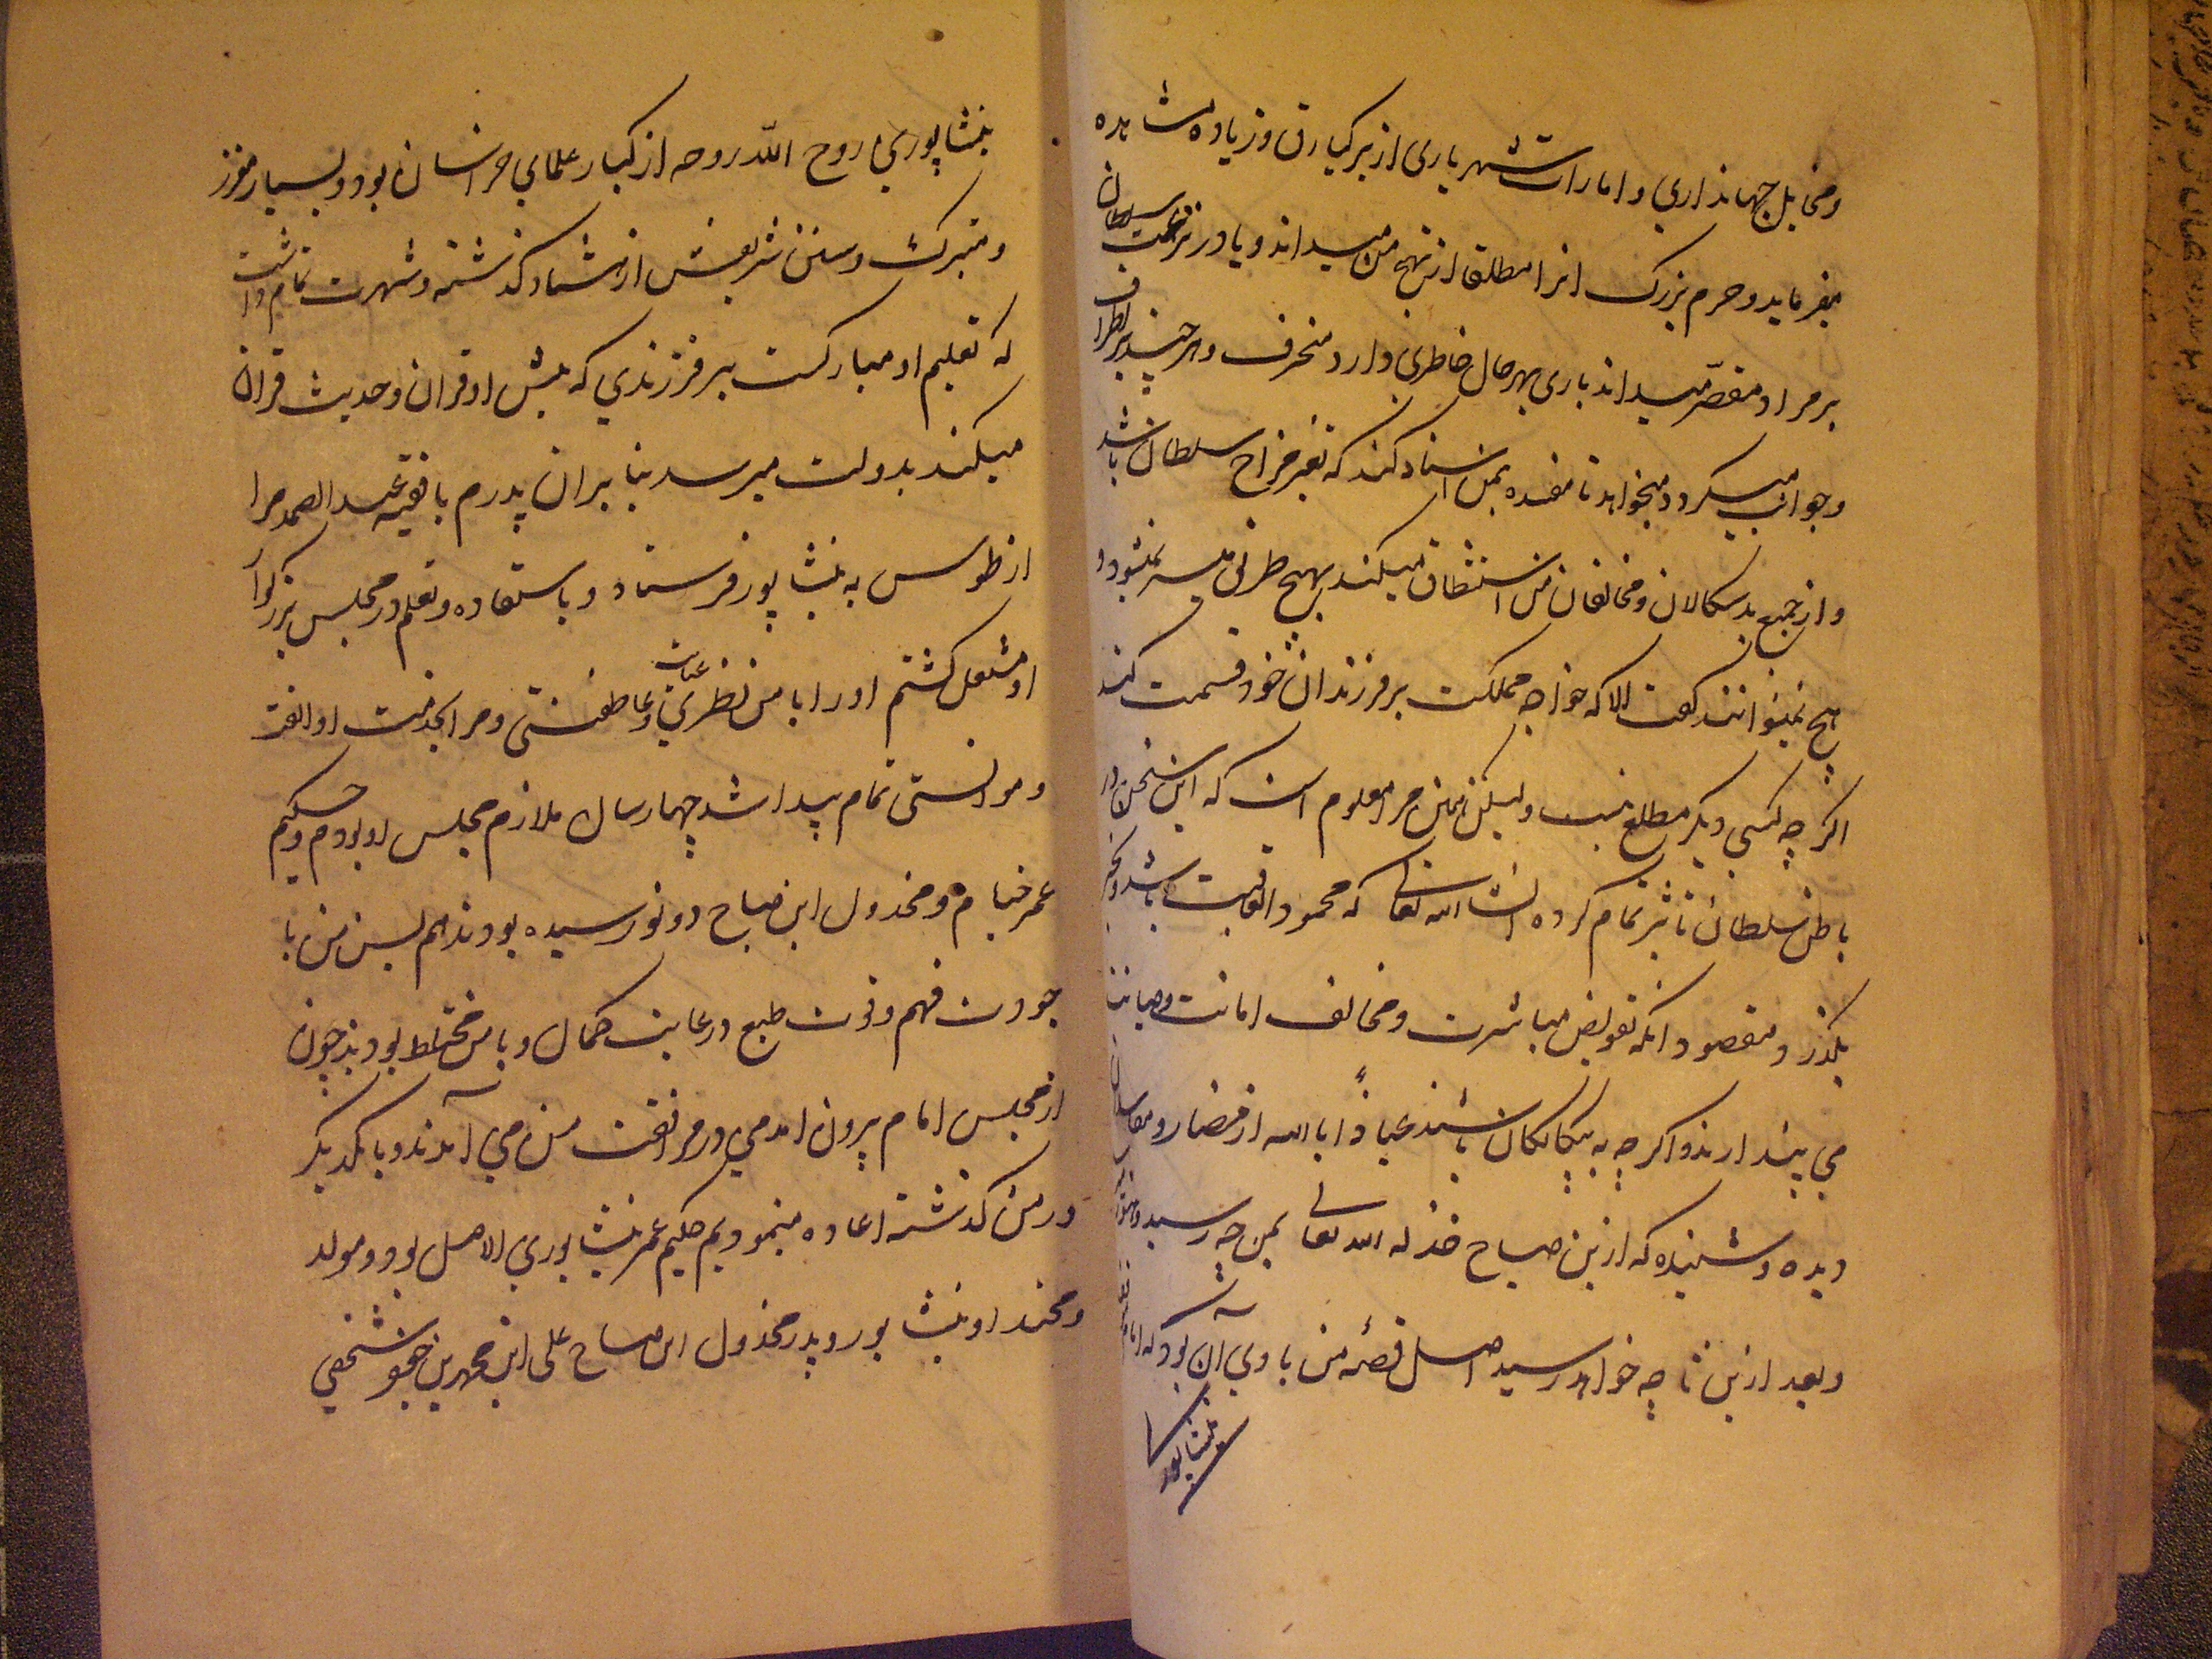 ومخایل جهانداری و امارات شهریاری از برکیارق زیاده مشاهده
میفرماید و حرم بزرک انرا مطلقا از نهج من میداند و یا در تربیت سلطان
بر مراد مقصر میداند باری بهر حال خاطری دارد منحرف و هر چند بر اطراف
و جوانب میکردد میخواهد تا مفسده بمن اسناد کند که تغیر مزاج سلطان باشد
و از جمیع بدسکالان و مخالفان من استنطاق میکند بهیچ طرفی میسر نمیشود و
هیچ نمیتوانند کفت الا که خواجه مملکت بر فرزندان خود قسمت کند
اکرچه کسی دیکر مطلع نیست ولیکن مرا معلوم است که این سخن در
باطن سلطان تاثیر تمام کرده انشاالله تعالی که محمود العاقبت باشد و بخیر
بکذرد و مقصود انکه تفویض مباشرت و مخالف امانت و صیانت
می پندارند و اکرچه به بیکانکان باشند عیاذا بالله از مضار و مفاسد
دیده و شنیده که ازین صباح خذله الله تعالی بمن چه رسید و هنوز
و بعد ازین تا چه خواهد رسید اصل قصه من با وی آن بود که امام
نیشاپوری
نیشاپوری روح الله روحه از کبار علمای خراسان بود و بسیار معزز
و متبرک و سنن شریفش از هشتاد کذشته و شهرت تمام داشت
که تعلیم او مبارکست هر فرزندی که پیش او قران و حدیث قران
میکند بدولت میرسد بنا بران پدرم با فقیه عبد الصمد مرا
از طوس به نیشاپور فرستاد و باستفاده و تعلم در مجلس بزرکوار
او مشتغل کشتم او را با من نظری عنایت و عاطفتی و مرا بخدمت او الفت
و موانستی تمام پیدا شد چهار سال ملازم مجلس او بودم و حکیم
عمر خیام و مخذول ابن صباح دو نو رسیده بودند هم سن من با
جودت فهم و قوت طبع در غایت کمال و با من مختلط بودند چون
از مجلس امام بیرون امدمی در مرافقت من می آمدند و با یکدیکر
درس کذشته اعاده مینمودیم حکیم عمر نیشابوری الاصل بود و مولد
و محتد او نیشابور و پدر مخذول ابن صباح علی ابن محمد بن جعفر شخصی